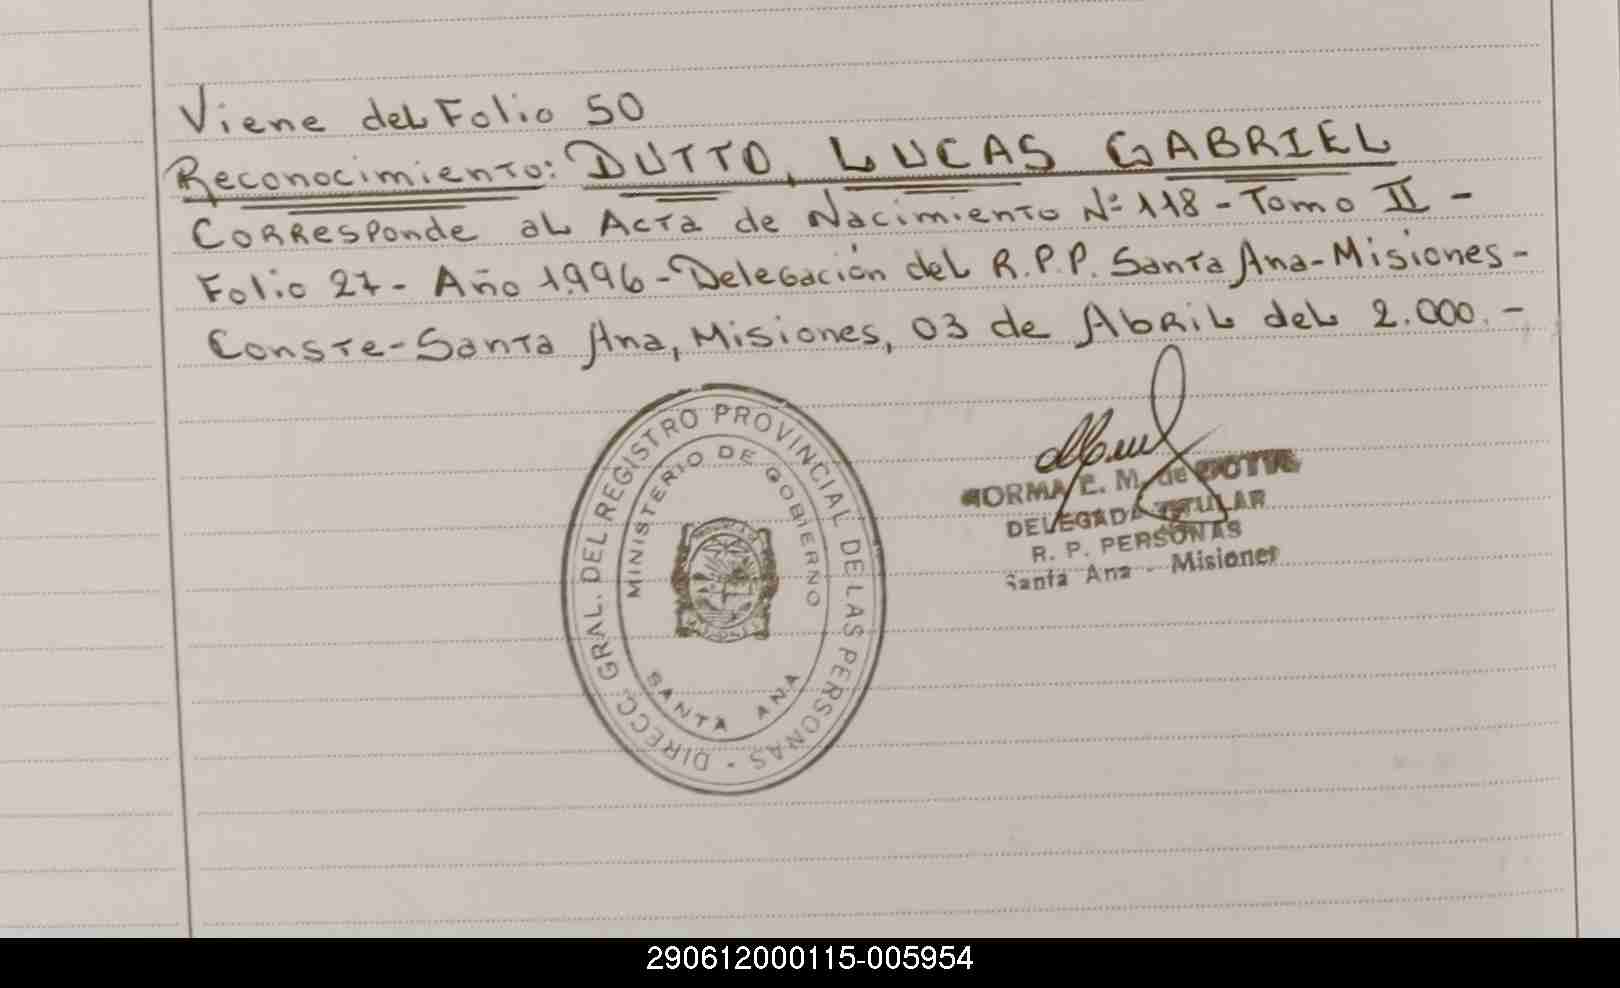 Viene del Folio 50
Reconocimiento: DUTTO, LUCAS GABRIEL
Corresponde al Acta de Nacimiento Nº 118 - Tomo II -
Folio 27 - Año 1.996 - Delegación del R.P.P. Santa Ana - Misiones -
Conste - Santa Ana, Misiones, 03 de Abril del 2.000. -
DIRECC. GRAL. DEL REGISTRO PROVINCIAL DE LAS PERSONAS
MINISTERIO DE GOBIERNO
SANTA ANA
NORMA E. M. de
DELEGADA TITULAR
R. P. PERSONAS
Santa Ana - Misiones
290612000115-005954